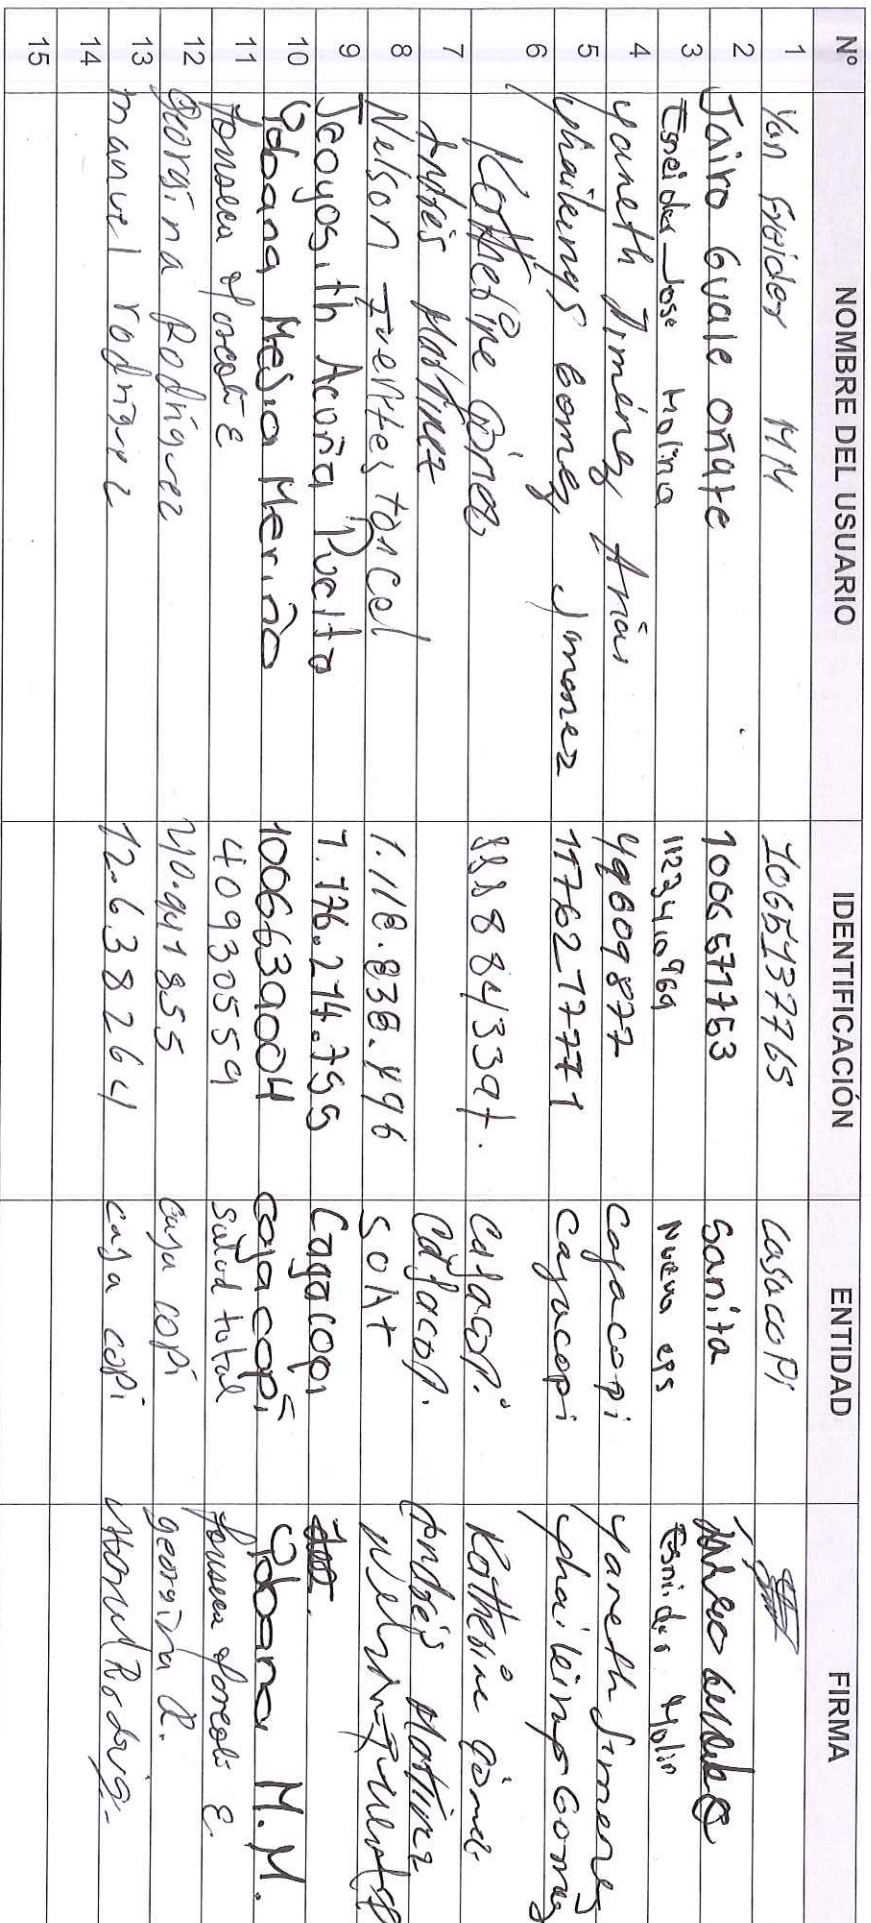 Nº NOMBRE DEL USUARIO IDENTIFICACIÓN ENTIDAD FIRMA
1 Yan M M 1065137765 casacopi
2 Jairo Guale oñate 1006571753 Sanita
3 Esneider Jose Molina Nueva eps Esneider Molin
4 yaneth Jiménez Arias 49609877 Cajacopi yaneth Jimenez
5 yhaileinys Gomez Jimenez Cajacopi yhaileinys Gomez
6 Katherine Gómez Cajacopi Katherine Gómez
7 Andrés Martinez Cajacopi. Andrés Martinez
8 Nelson Fuentes toncel 1.118.838.496 SOAT Nelson Fuentes
9 Acoña 1.176.214.755 Cagacopi
10 Meriño 1006639004 cojacopi M.M.
11 fonseca E 40930559 Salud total fonseca E.
12 georgina Rodriguez 40.941855 Caja copi georgina R.
13 manuel rodriguez 12.638264 caja copi Manuel Rodrig.
14
15